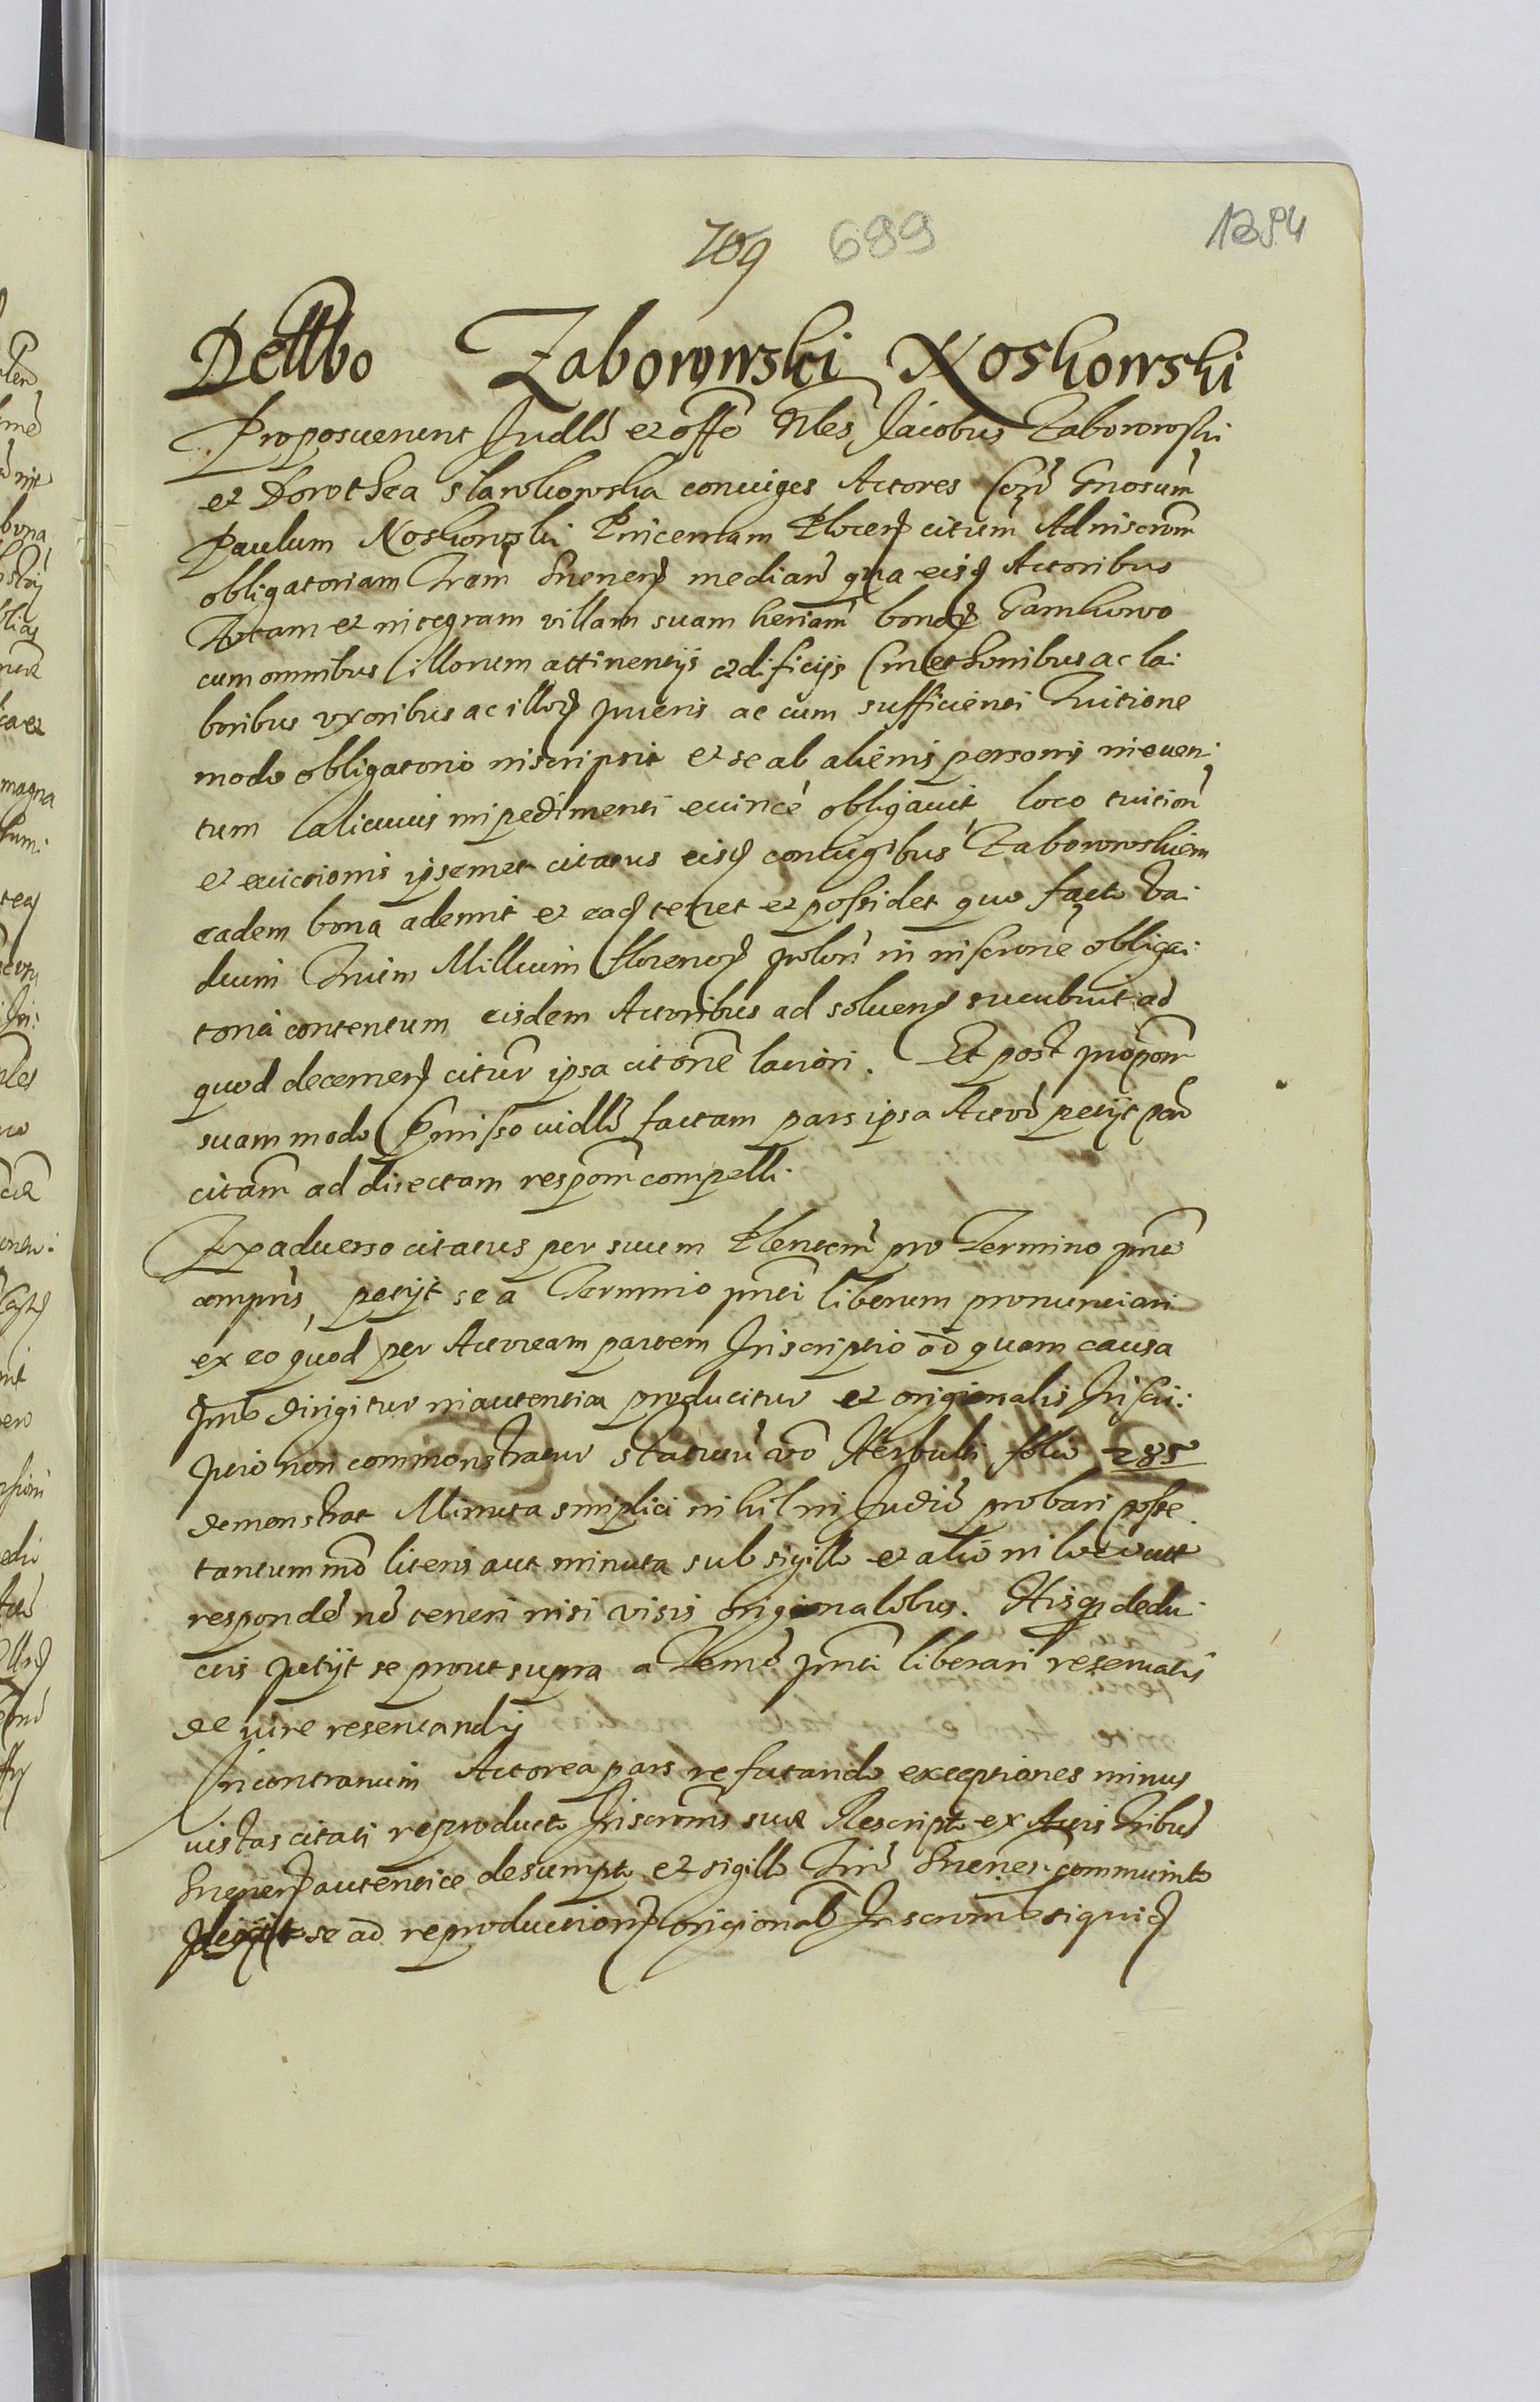 709 699 1394
Dellbo Zaborowski Noskowski
Proposuerunt Judllr et offo Nbles Jacobus Zaborowski
et Dorothea slawkowska coniuges Actores Con Gnosum
Paulum Noskowski Pincernam Plocens citum Ad inscrom
obligatoriam Tram Srenens median qua eisd Actoribus
Totam et integram villam suam heriam bonor Gamkowo
cum omnibus illorum attinentijs ædificijs Cmethonibus ac la:
boribus vxoribus ac illor pueris ac cum sufficienti Tuitione
modo obligatorio inscripsit et se ab alienis personis in euen:
tum alicuius impedimenti euince obligauit, loco tuition
et euictionis ipsemet citatus eisd coniugibus Zaborowskiem
eadem bona ademit et ead tenet et possidet quo facto va:
dium Trium Millium florenor polon in inscrone obliga:
toria contentum eisdem Actoribus ad soluend sucubuit ad
quod decernend citur ipsa citone latiori. Et post propom
suam modo Pmisso uidllr factam pars ipsa Actor petijt par
citam ad directam respom compelli.
Ex aduerso citatus per suum Plentem pro Termino pnti
compns, petijt se a Termino pnti liberum pronunciari
ex eo quod per Actoream partem Inscriptio ad quam causa
pns dirigitur in autentica producitur et originalis Inscri:
ptio non commonstratur statutu vo Herbulti folio 285
demonstrat Minuta simplici nihil in Judio probari posse
tantummo literis aut minuta sub sigillo et alio in loco aut
responde no teneri nisi visis originalibus. Hisq dedu:
ctis petijt se prout supra a Termo pnti liberari reseruatis
de iure reseruandis
In contrarium Actorea pars refutando exceptiones minus
iustas citati reproducto Inscronis suæ Rescripto ex Actis Tribus
Srenens autentice desumpto et sigillo Trio Srenen communito
se ad reproductionem original Inscrom siquid